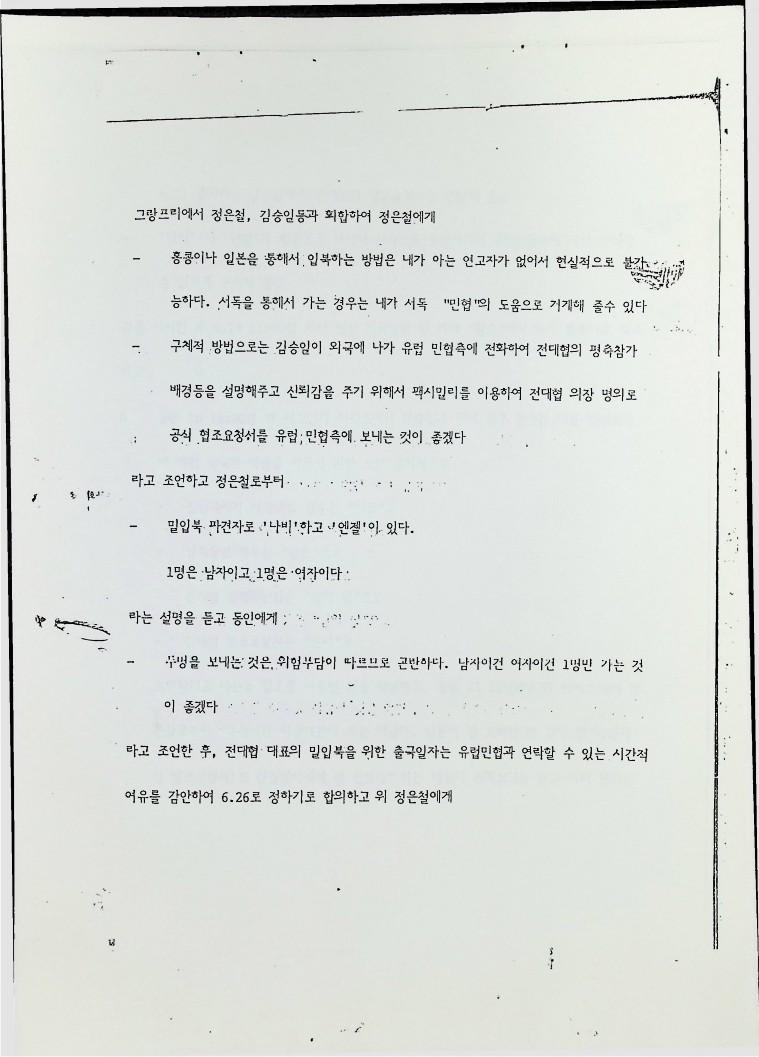 그랑프리에서 정은철, 김승일등과 회합하여 정은철에게
- 홍콩이나 일본을 통해서 입북하는 방법은 내가 아는 연고자가 없어서 현실적으로 불가
능하다. 서독을 통해서 가는 경우는 내가 서독 "민협"의 도움으로 가게해 줄수 있다
- 구체적 방법으로는 김승일이 외국에 나가 유럽 민협측에 전화하여 전대협의 평축참가
배경등을 설명해주고 신뢰감을 주기 위해서 팩시밀리를 이용하여 전대협 의장 명의로
공식 협조요청서를 유럽 민협측에 보내는 것이 좋겠다
라고 조언하고 정은철로부터
- 밀입북 파견자로 "나비"하고 "엔젤"이 있다.
1명은 남자이고 1명은 여자이다
라는 설명을 듣고 동인에게
- 두명을 보내는 것은 위험부담이 따르므로 곤란하다. 남자이건 여자이건 1명만 가는 것
이 좋겠다
라고 조언한 후, 전대협 대표의 밀입북을 위한 출국일자는 유럽민협과 연락할 수 있는 시간적
여유를 감안하여 6.26로 정하기로 합의하고 위 정은철에게